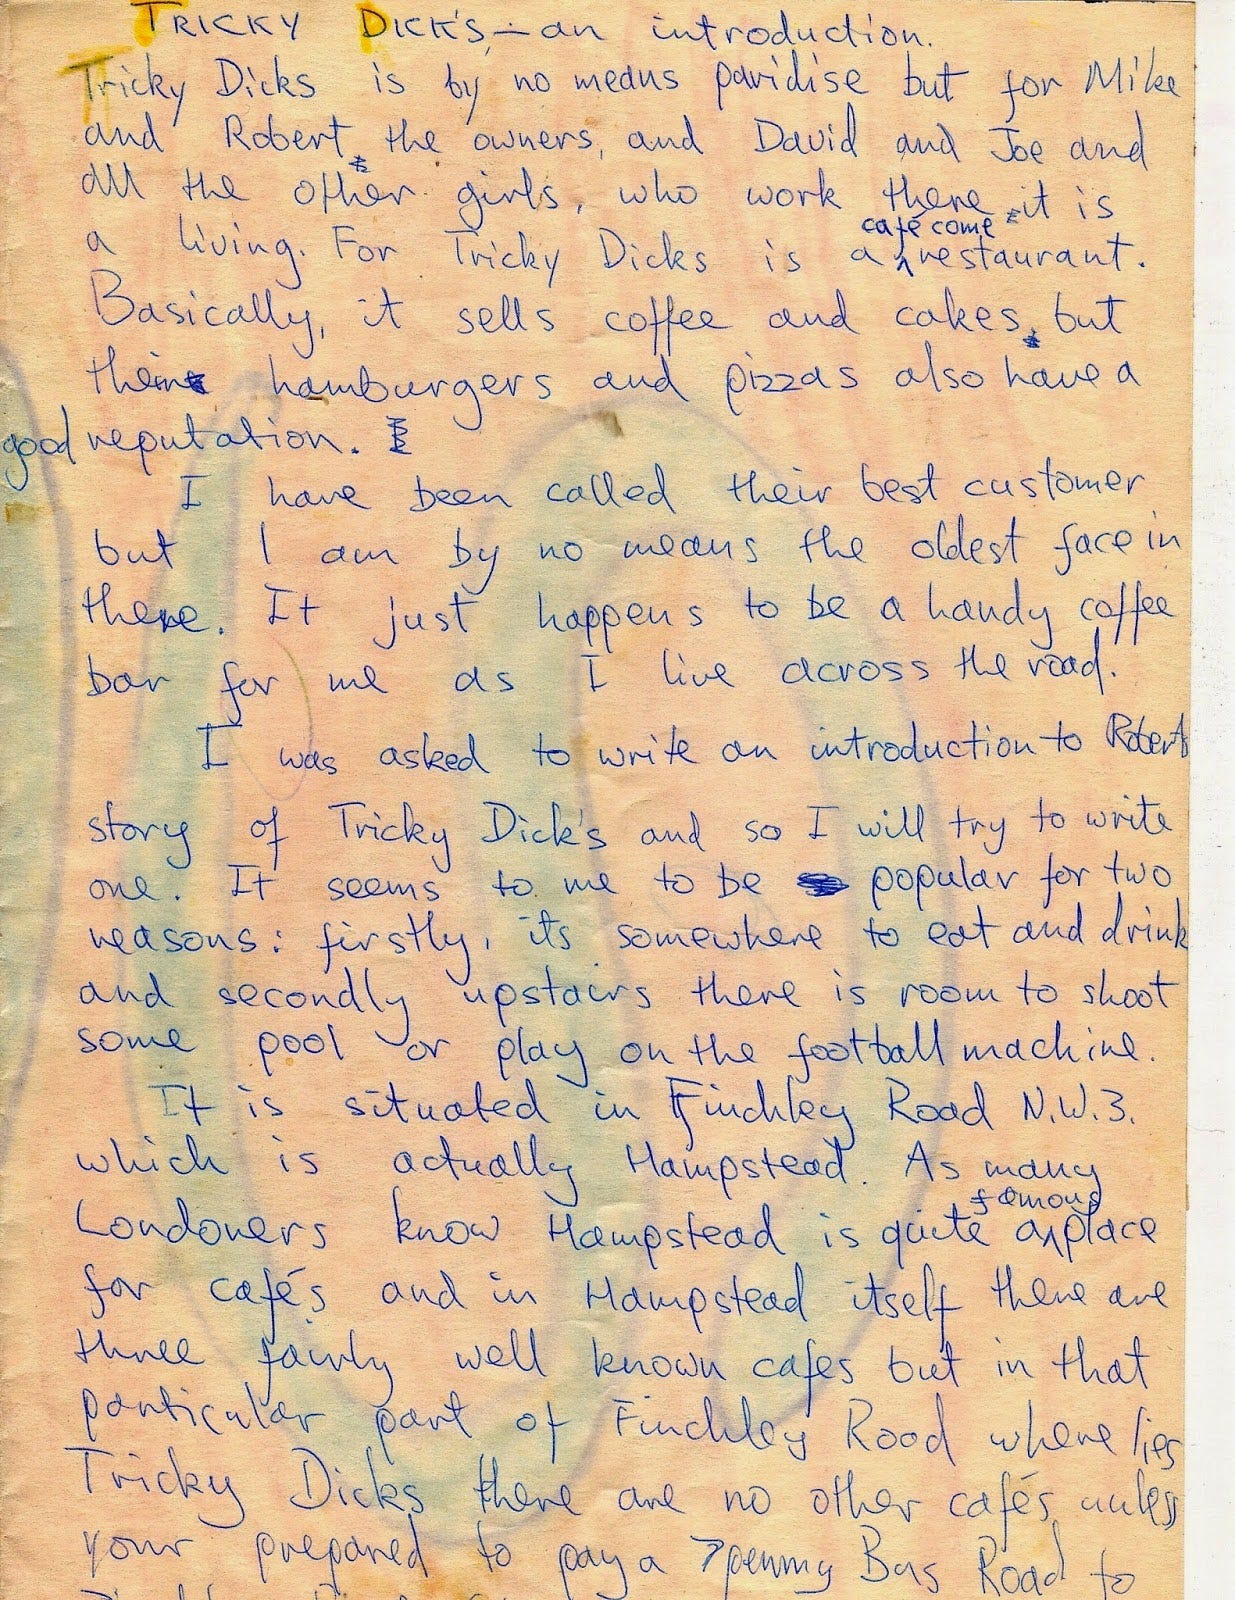 TRICKY DICK'S, – an introduction.
Tricky Dicks is by no means paridise but for Mike
and Robert, the owners, and David and Joe and
all the other girls, who work there, it is
a living. For Tricky Dicks is a café come restaurant.
Basically, it sells coffee and cakes, but
their hamburgers and pizzas also have a
good reputation.
I have been called their best customer
but I am by no means the oldest face in
there. It just happens to be a handy coffee
bar for me as I live across the road.
I was asked to write an introduction to Roberts
story of Tricky Dick's and so I will try to write
one. It seems to me to be popular for two
reasons: firstly, its somewhere to eat and drink
and secondly upstairs there is room to shoot
some pool or play on the football machine.
It is situated in Finchley Road N.W.3.
which is actually Hampstead. As many
Londoners know Hampstead is quite a famous place
for cafés and in Hampstead itself there are
three fairly well known cafes but in that
particular part of Finchley Road where lies
Tricky Dicks there are no other cafés unless
your prepared to pay a 7penny Bus Road to